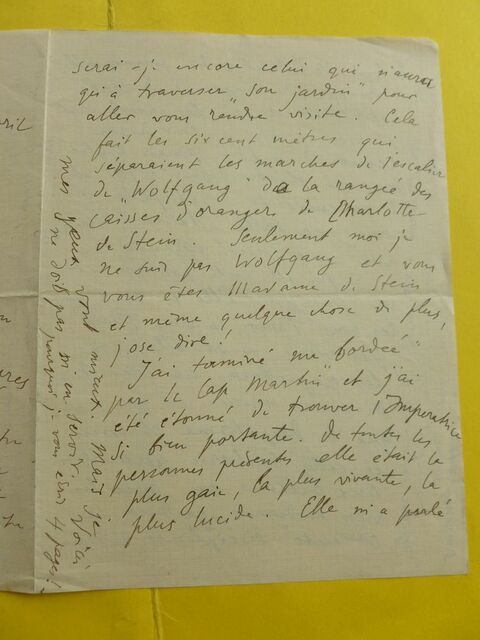 serai-je encore celui qui n'aura
qu'à traverser "son jardin" pour
aller vous rendre visite. Cela
fait les six cent mètres qui
séparaient les marches de l'escalier
de "Wolfgang" de la rangée des
caisses d'oranger de Charlotte
de Stein. Seulement moi je
ne suis pas Wolfgang et vous
vous êtes Madame de Stein
et même quelque chose de plus,
j'ose dire!
J'ai terminé ma "bordée"
par le Cap Martin et j'ai
été étonné de trouver l'Impératrice
si bien portante. De toutes les
personnes présentes elle était la
plus gaie, la plus vivante, la
plus lucide. Elle m'a parlé
mes yeux vont mieux. Mais je
ne dois pas m'en servir. Voici
pourquoi je vous écris 4 pages!